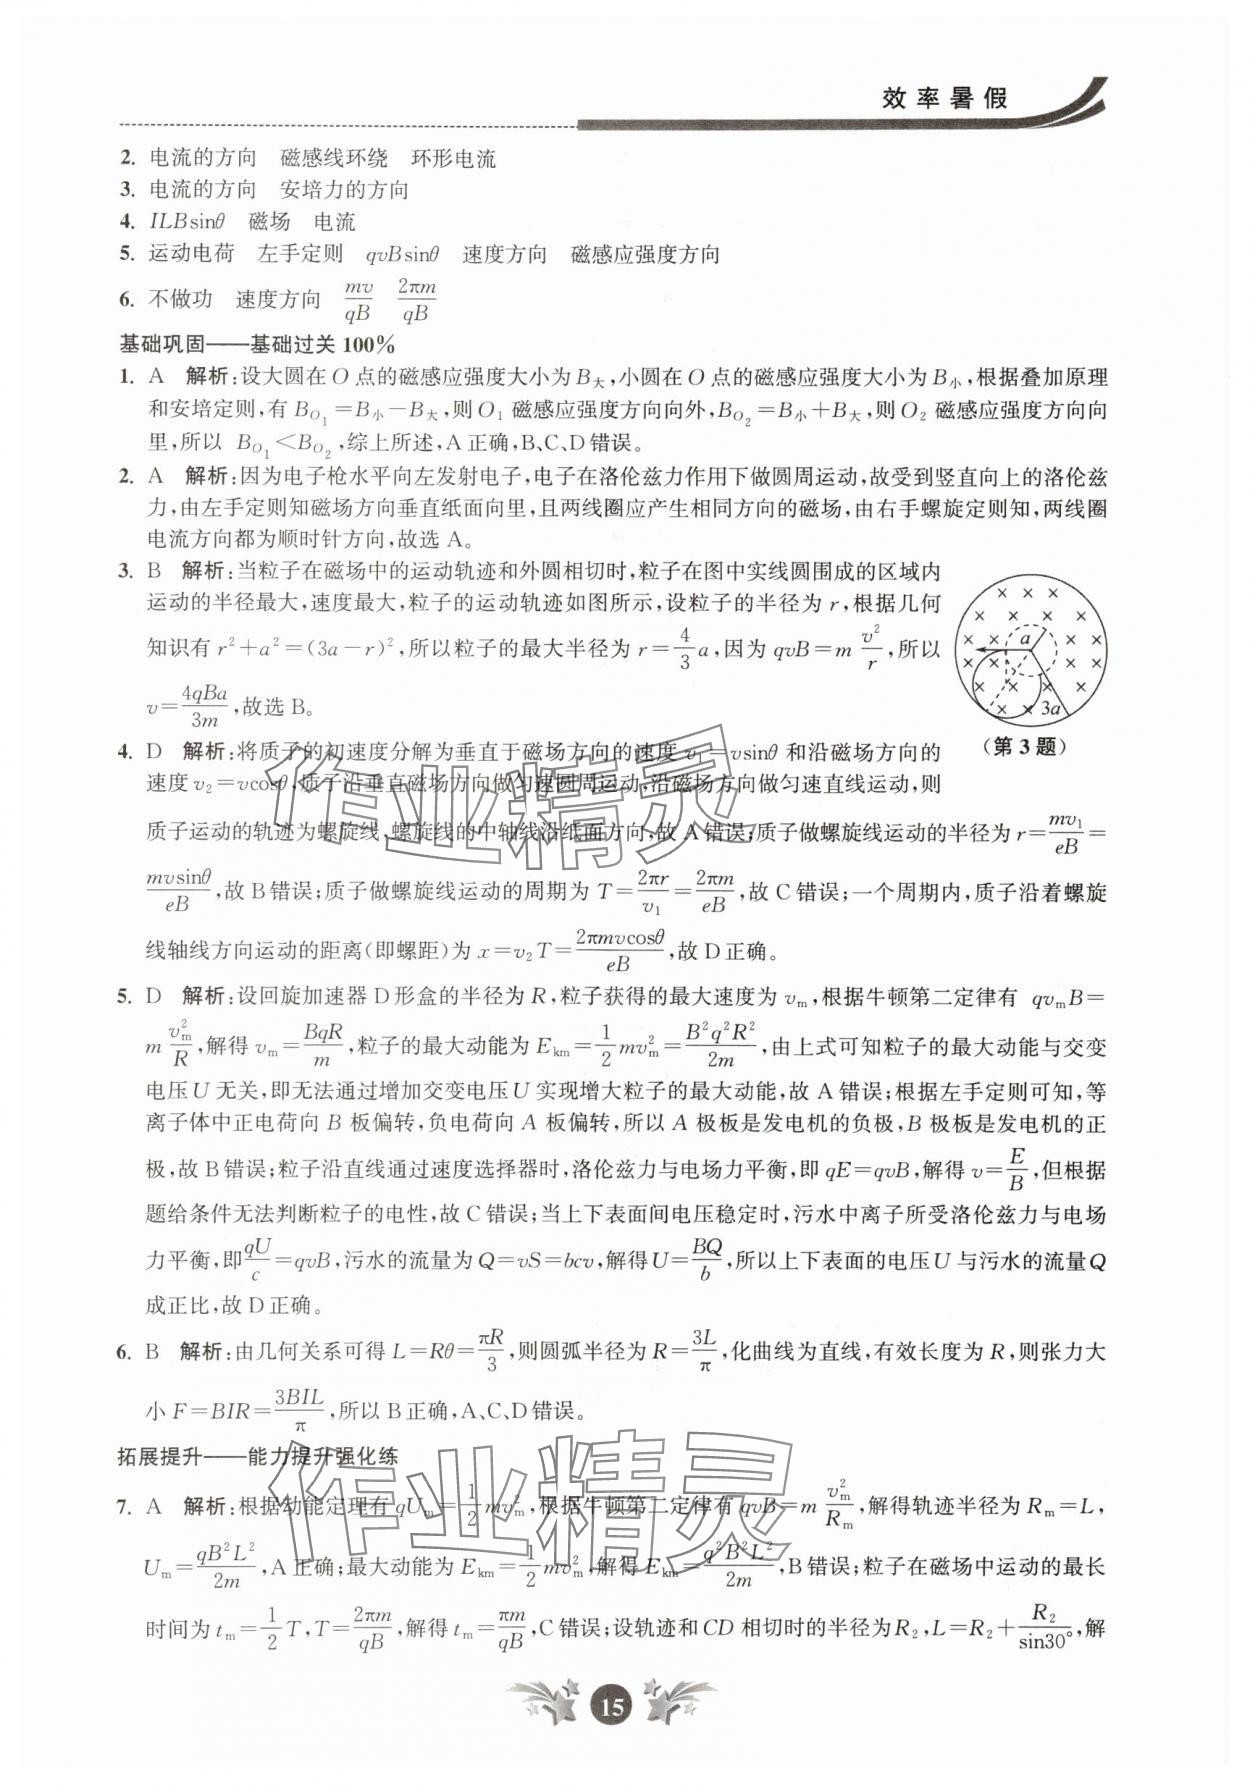 效率暑假
2. 电流的方向 磁感线环绕 环形电流
3. 电流的方向 安培力的方向
4. ILBsinθ 磁场 电流
5. 运动电荷 左手定则 qvBsinθ 速度方向 磁感应强度方向
6. 不做功 速度方向 mv/qB 2πm/qB
基础巩固——基础过关100%
1. A 解析:设大圆在O点的磁感应强度大小为B大,小圆在O点的磁感应强度大小为B小,根据叠加原理
和安培定则,有B_O₁=B小-B大,则O₁磁感应强度方向向外,B_O₂=B小+B大,则O₂磁感应强度方向向
里,所以 B_O₁<B_O₂,综上所述,A正确,B、C、D错误。
2. A 解析:因为电子枪水平向左发射电子,电子在洛伦兹力作用下做圆周运动,故受到竖直向上的洛伦兹
力,由左手定则知磁场方向垂直纸面向里,且两线圈应产生相同方向的磁场,由右手螺旋定则知,两线圈
电流方向都为顺时针方向,故选A。
3. B 解析:当粒子在磁场中的运动轨迹和外圆相切时,粒子在图中实线圆围成的区域内
运动的半径最大,速度最大,粒子的运动轨迹如图所示,设粒子的半径为r,根据几何
知识有r²+a²=(3a-r)²,所以粒子的最大半径为r=4/3 a,因为qvB=m v²/r,所以
v=4qBa/3m,故选B。
a
3a
(第3题)
4. D 解析:将质子的初速度分解为垂直于磁场方向的速度v₁=vsinθ和沿磁场方向的
速度v₂=vcosθ,质子沿垂直磁场方向做匀速圆周运动,沿磁场方向做匀速直线运动,则
质子运动的轨迹为螺旋线,螺旋线的中轴线沿纸面方向,故A错误;质子做螺旋线运动的半径为r=mv₁/eB=
mvsinθ/eB,故B错误;质子做螺旋线运动的周期为T=2πr/v₁=2πm/eB,故C错误;一个周期内,质子沿着螺旋
线轴线方向运动的距离(即螺距)为x=v₂T=2πmvcosθ/eB,故D正确。
5. D 解析:设回旋加速器D形盒的半径为R,粒子获得的最大速度为vₘ,根据牛顿第二定律有 qvₘB=
m vₘ²/R,解得vₘ=BqR/m,粒子的最大动能为Eₖₘ=1/2 mvₘ²=B²q²R²/2m,由上式可知粒子的最大动能与交变
电压U无关,即无法通过增加交变电压U实现增大粒子的最大动能,故A错误;根据左手定则可知,等
离子体中正电荷向B板偏转,负电荷向A板偏转,所以A极板是发电机的负极,B极板是发电机的正
极,故B错误;粒子沿直线通过速度选择器时,洛伦兹力与电场力平衡,即qE=qvB,解得v=E/B,但根据
题给条件无法判断粒子的电性,故C错误;当上下表面间电压稳定时,污水中离子所受洛伦兹力与电场
力平衡,即qU/c=qvB,污水的流量为Q=vS=bcv,解得U=BQ/b,所以上下表面的电压U与污水的流量Q
成正比,故D正确。
6. B 解析:由几何关系可得L=Rθ=πR/3,则圆弧半径为R=3L/π,化曲线为直线,有效长度为R,则张力大
小F=BIR=3BIL/π,所以B正确,A、C、D错误。
拓展提升——能力提升强化练
7. A 解析:根据动能定理有qUₘ=1/2 mvₘ²,根据牛顿第二定律有qvB=m vₘ²/Rₘ,解得轨迹半径为Rₘ=L,
Uₘ=qB²L²/2m,A正确;最大动能为Eₖₘ=1/2 mvₘ²,解得Eₖₘ=q²B²L²/2m,B错误;粒子在磁场中运动的最长
时间为tₘ=1/2 T,T=2πm/qB,解得tₘ=πm/qB,C错误;设轨迹和CD相切时的半径为R₂,L=R₂+R₂/sin30°,解
15
作业精灵
作业精灵